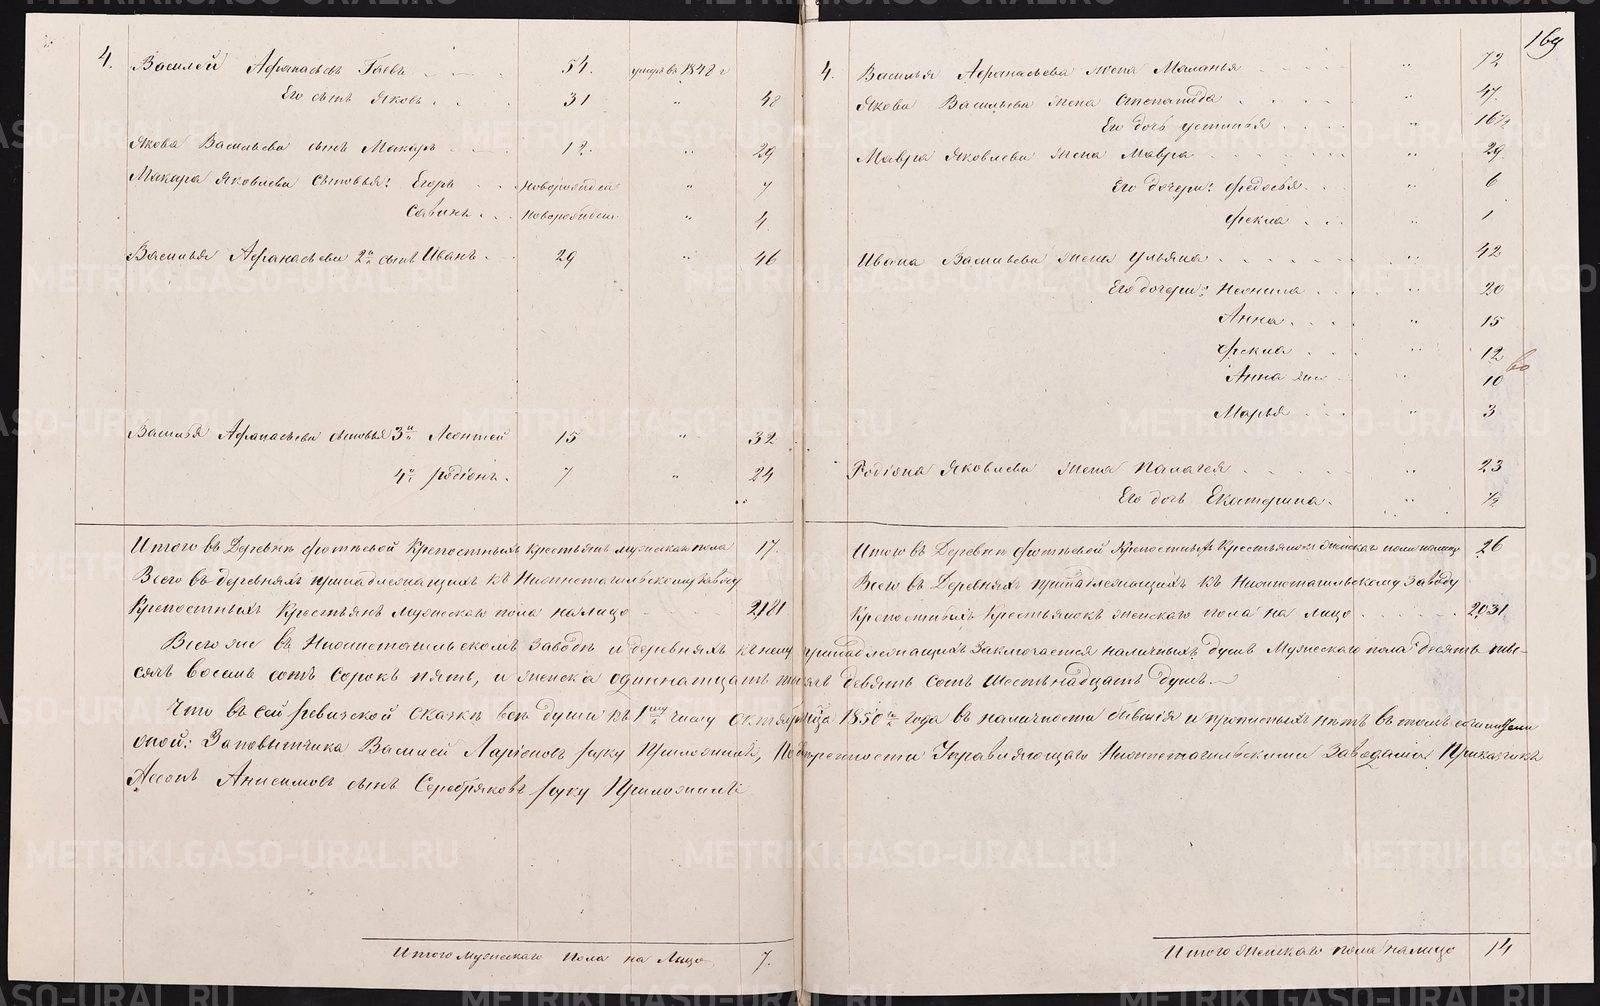 169
4. Василей Афанасьевъ Гаевъ 54. умеръ въ 1848 г
Его сынъ Яковъ 31 " 48
Якова Васильева сынъ Макаръ 12. " 29
Макара Яковлева сыновья: Егоръ новорожден " 7
Савинъ новорожден " 4
Василья Афанасьева 2й сынъ Иванъ 29 " 46
Василья Афанасьева сыновья 3й Леонтей 15 " 32
4й Родіонъ 7 " 24
Итого въ Деревнѣ Фотѣевой Крепостныхъ крестьянъ мужескаго пола 17.
Всего въ деревняхъ принадлежащихъ къ Нижнетагильскому заводу
Крепостныхъ Крестьянъ мужескаго пола на лицо 2181
4. Василья Афанасьева жена Маланья " 72
Якова Васильева жена Степанида " 47
Его дочь Устинья " 16½
Мавра Яковлева жена Мавра " 29
Его дочери: Федосья " 6
Фекла " 1
Ивана Васильева жена Ульяна " 42
Его дочери: Неонила " 20
Анна " 15
Фекла " 12
Анна " 10
Марья " 3
Родіона Яковлева жена Палагея " 23
Его дочь Екатерина " ½
Итого въ Деревнѣ Фотѣевой Крепостныхъ Крестьянокъ женскаго пола налицо 26
Всего въ Деревняхъ принадлежащихъ къ Нижнетагильскому Заводу
Крепостныхъ Крестьянокъ женскаго пола на лицо 2031
Всего же въ Нижнетагильскомъ Заводѣ и деревняхъ къ нему принадлежащихъ Заключается наличныхъ душъ Мужескаго пола десять ты-
сячъ восемь сотъ сорокъ пять, и женска одиннатцать тысячъ девять сотъ шестьнадцать душъ.
Что въ сей ревижской сказкѣ всѣ души къ 1му числу октября мца 1850го года въ наличности бывшія и прописныхъ нѣтъ въ томъ
оной: Заповытчика Василей Ларіоновъ руку Приложилъ, По Управляющаго Нижнетагильскими Заводами Прикащикъ
Анисимовъ сынъ Серебряковъ руку Приложилъ
Итого мужескаго пола на Лицо 7.
Итого женскаго пола налицо 14
METRIKI.GASO-URAL.RU